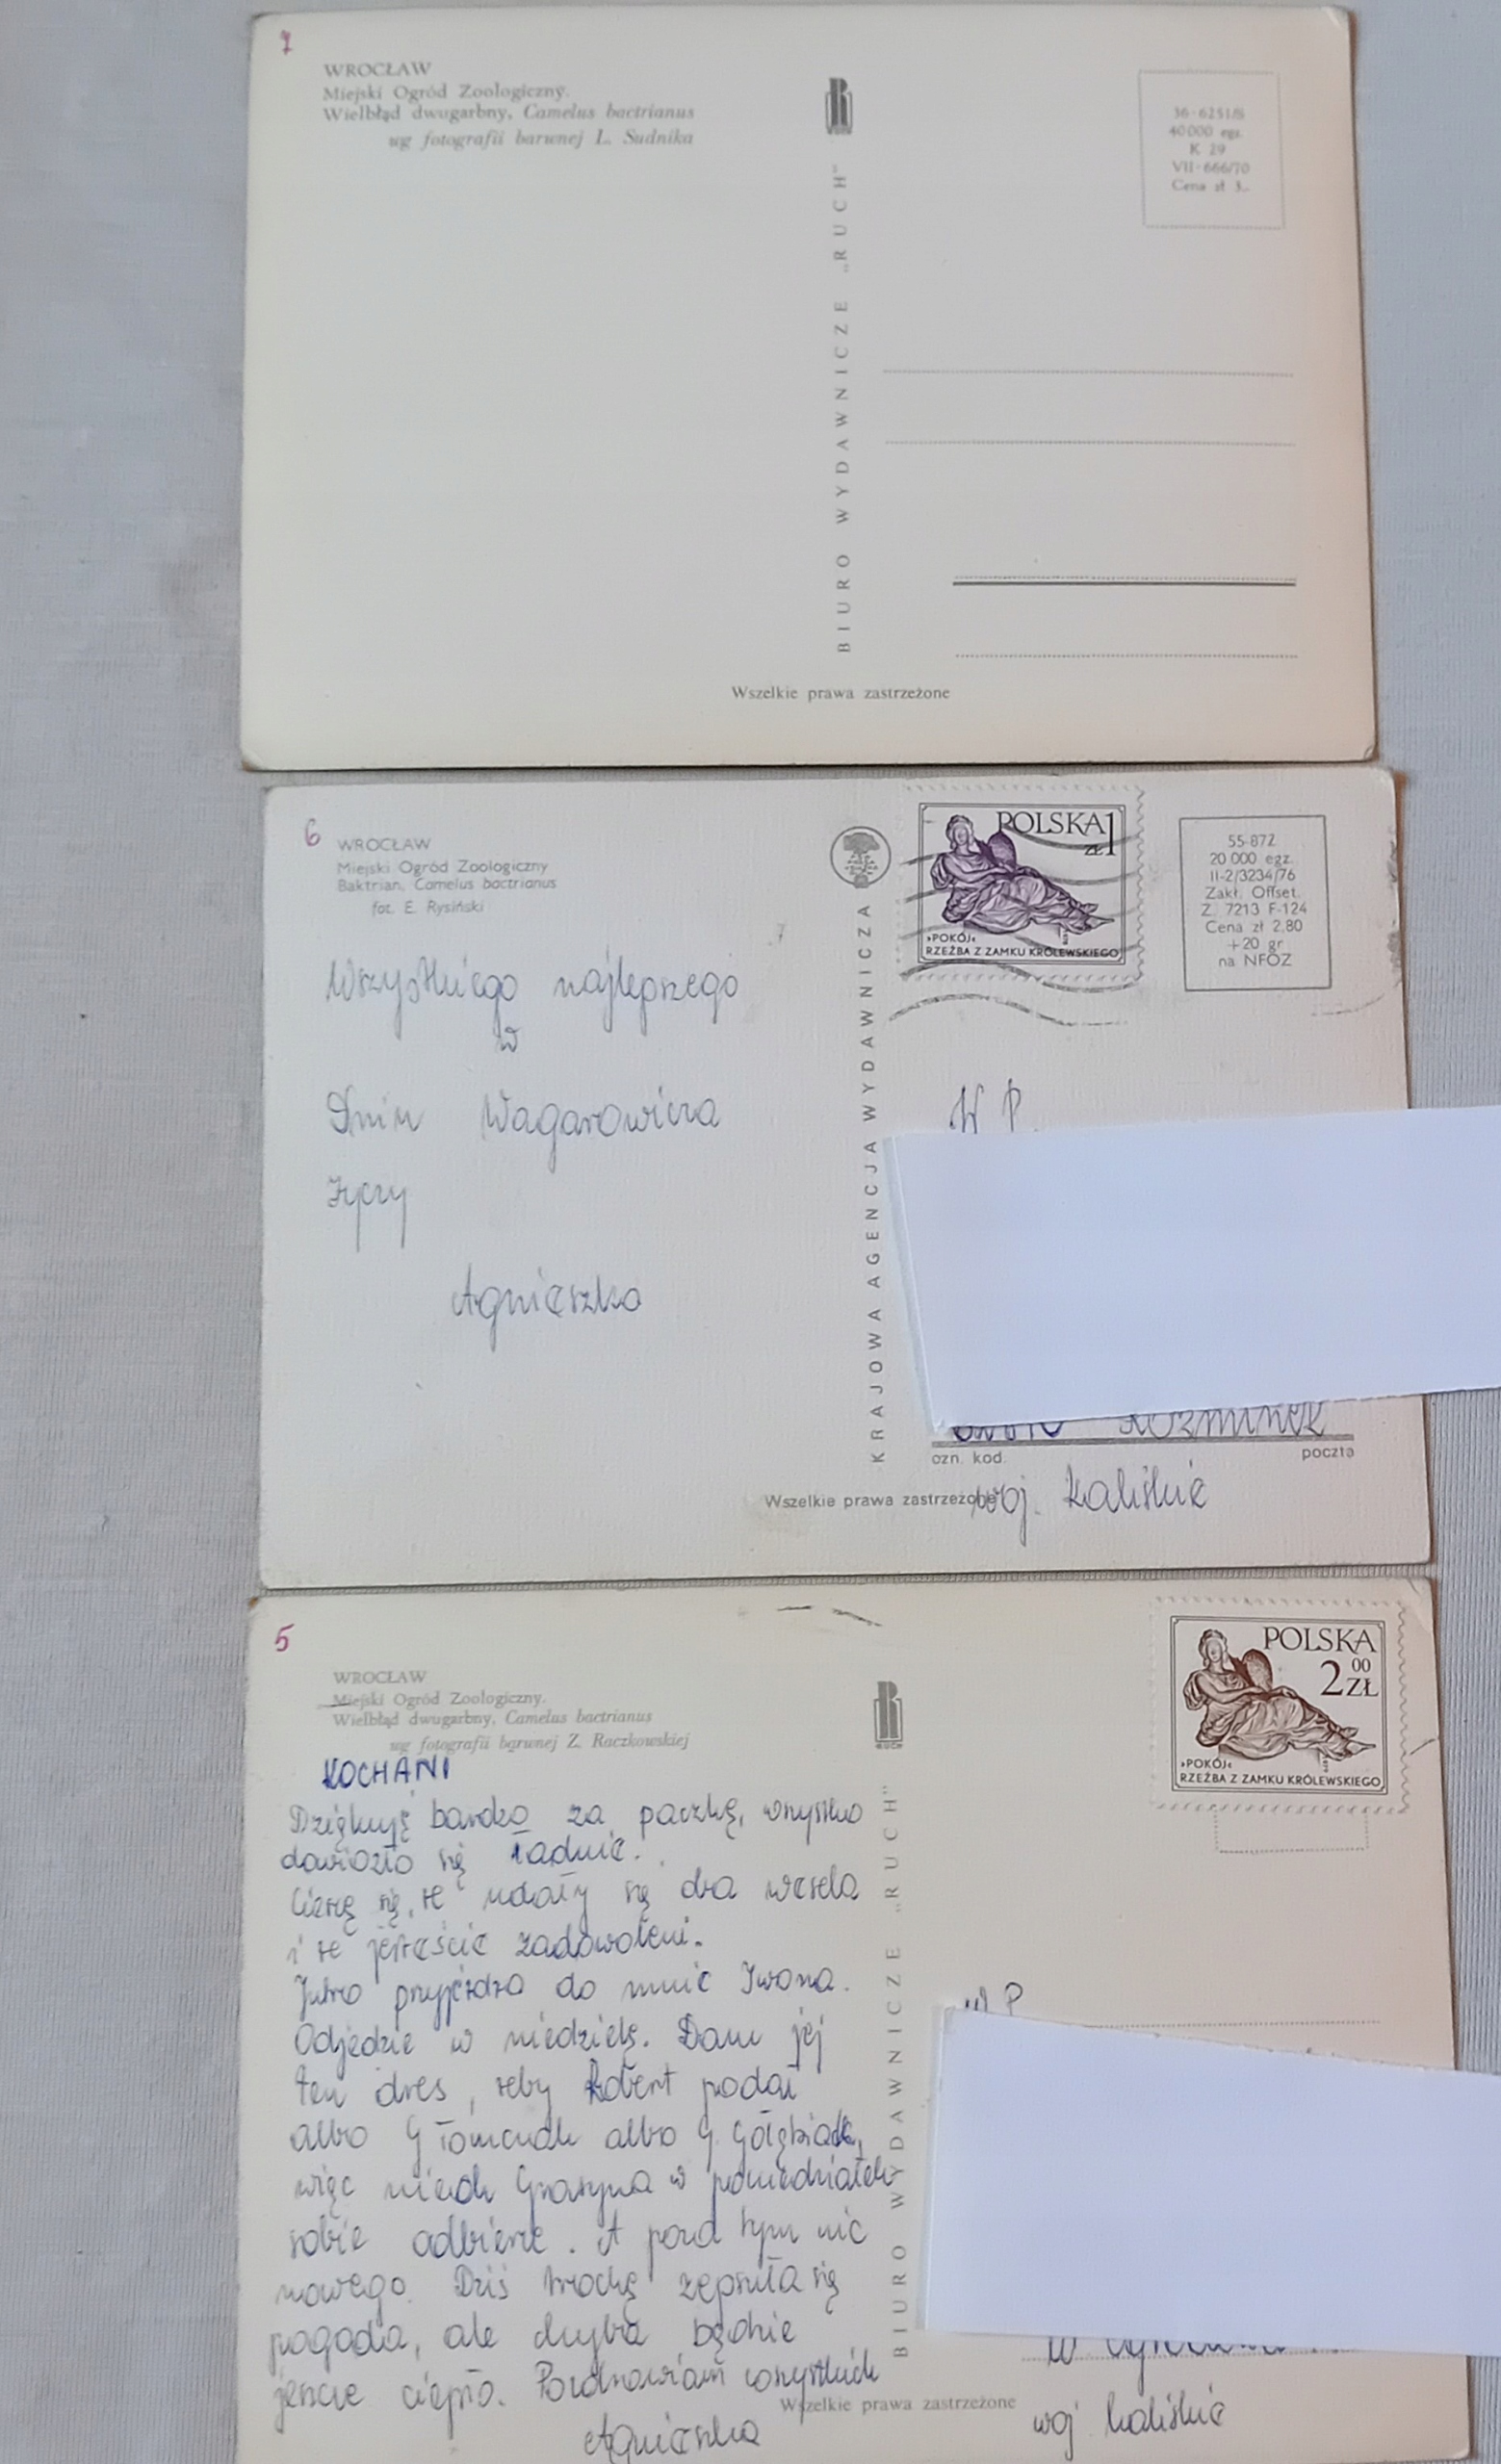 7
WROCŁAW
Miejski Ogród Zoologiczny.
Wielbłąd dwugarbny, Camelus bactrianus
wg fotografii barwnej L. Sudnika
RUCH
BIURO WYDAWNICZE „RUCH"
36-6251/8
40 000 egz.
K 29
VII-666/70
Cena zł 3,-
Wszelkie prawa zastrzeżone
6
WROCŁAW
Miejski Ogród Zoologiczny
Baktrian, Camelus bactrianus
fot. E. Rysiński
Wszystkiego najlepszego
w
Dniu Wagarowicza
życzy
Agnieszka
KRAJOWA AGENCJA WYDAWNICZA
POLSKA 1
zł
»POKÓJ«
RZEŹBA Z ZAMKU KRÓLEWSKIEGO
55-872
20 000 egz.
II-2/3234/76
Zakł. Offset.
Z. 7213 F-124
Cena zł 2,80
+20 gr
na NFOZ
W P.
Koźminek
ozn. kod. poczta
Wszelkie prawa zastrzeżone
woj. kaliskie
5
WROCŁAW
Miejski Ogród Zoologiczny.
Wielbłąd dwugarbny, Camelus bactrianus
wg fotografii barwnej Z. Raczkowskiej
KOCHANI
Dziękuję bardzo za paczkę, wszystko
dowiozło się ładnie.
Cieszę się, że udały się dwa wesela
i że jesteście zadowoleni.
Jutro przyjeżdża do mnie Iwona.
Odjedzie w niedzielę. Dam jej
ten dres, żeby Robert podał
albo G. albo G.
więc niech Grażyna w poniedziałek
sobie odbierze. A poza tym nic
nowego. Dziś trochę zepsuła się
pogoda, ale chyba będzie
jeszcze ciepło. Pozdrawiam wszystkich
Agnieszka
RUCH
BIURO WYDAWNICZE „RUCH"
POLSKA
2 00 ZŁ
»POKÓJ«
RZEŹBA Z ZAMKU KRÓLEWSKIEGO
W P
Wszelkie prawa zastrzeżone
woj kaliskie